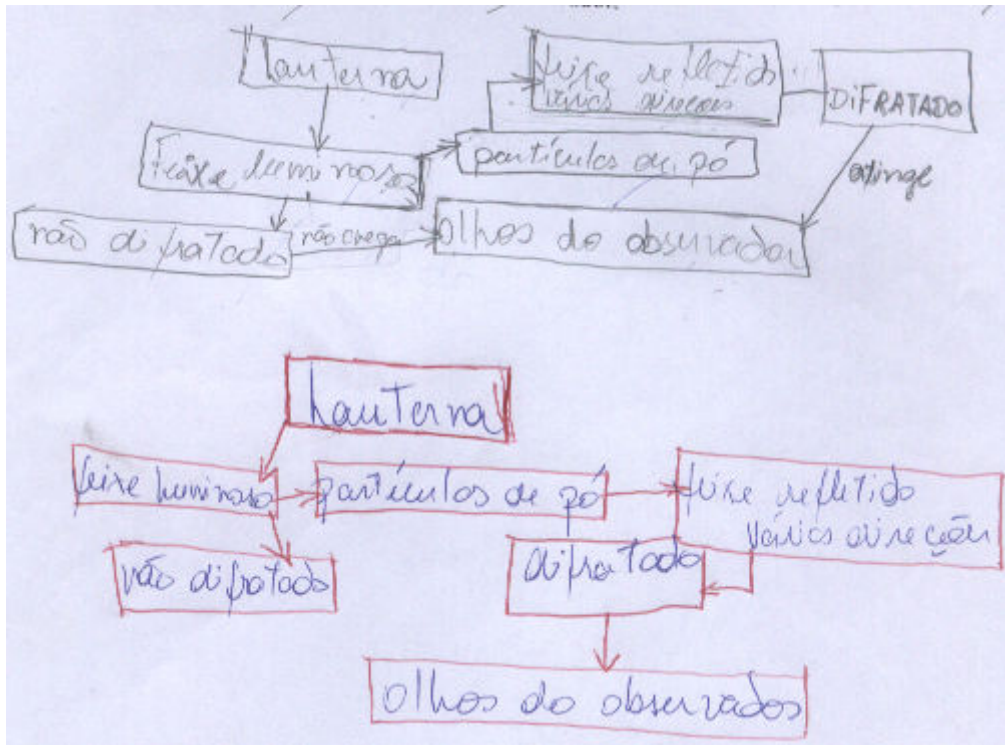 Lanterna
feixe refletido
várias direcoes
DIFRATADO
feixe luminoso
partículas de pó
atinge
não difratado
não chega
olhos do observador
Lanterna
feixe luminoso
partículas de pó
feixe refletido
várias direção
não difratado
difratado
olhos do observados